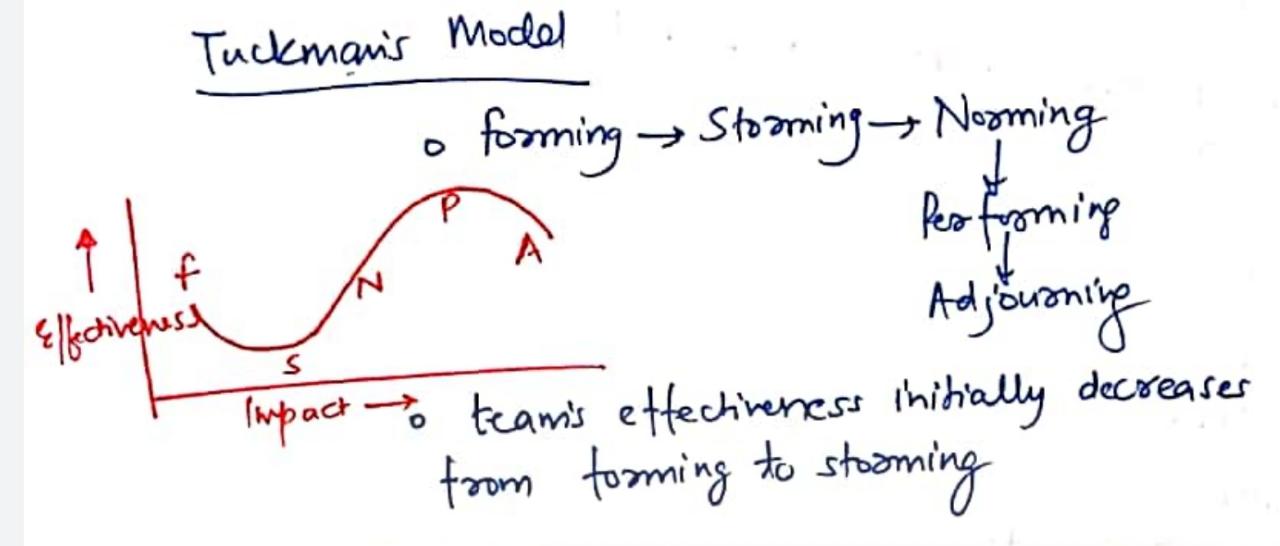 Tuckman's Model
o forming → Storming → Norming
↓
Performing
↓
Adjourning
↑ Effectiveness
f
S
N
P
A
Impact →
o team's effectiveness initially decreases
from forming to storming